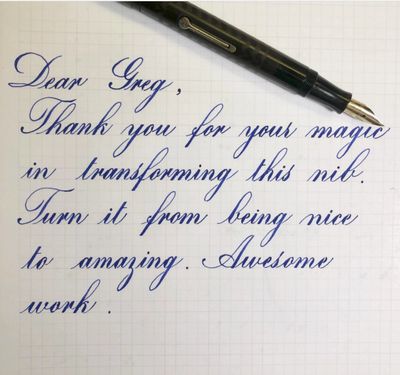 Dear Greg,
Thank you for your magic
in transforming this nib.
Turn it from being nice
to amazing. Awesome
work.